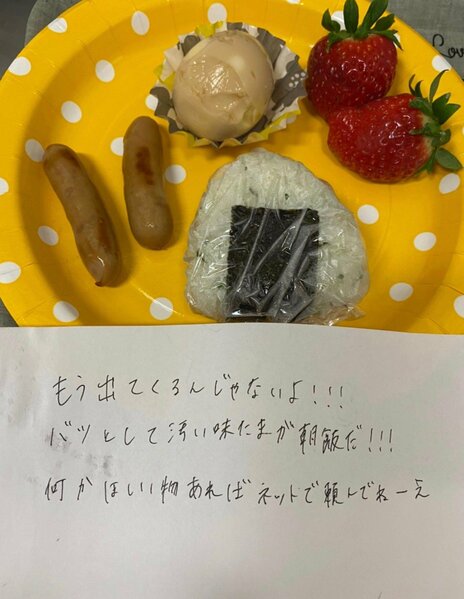 もう出てくるんじゃないよ!!!
バツとして汚い味たまが朝飯だ!!!
何かほしい物あればネットで頼んでねーえ